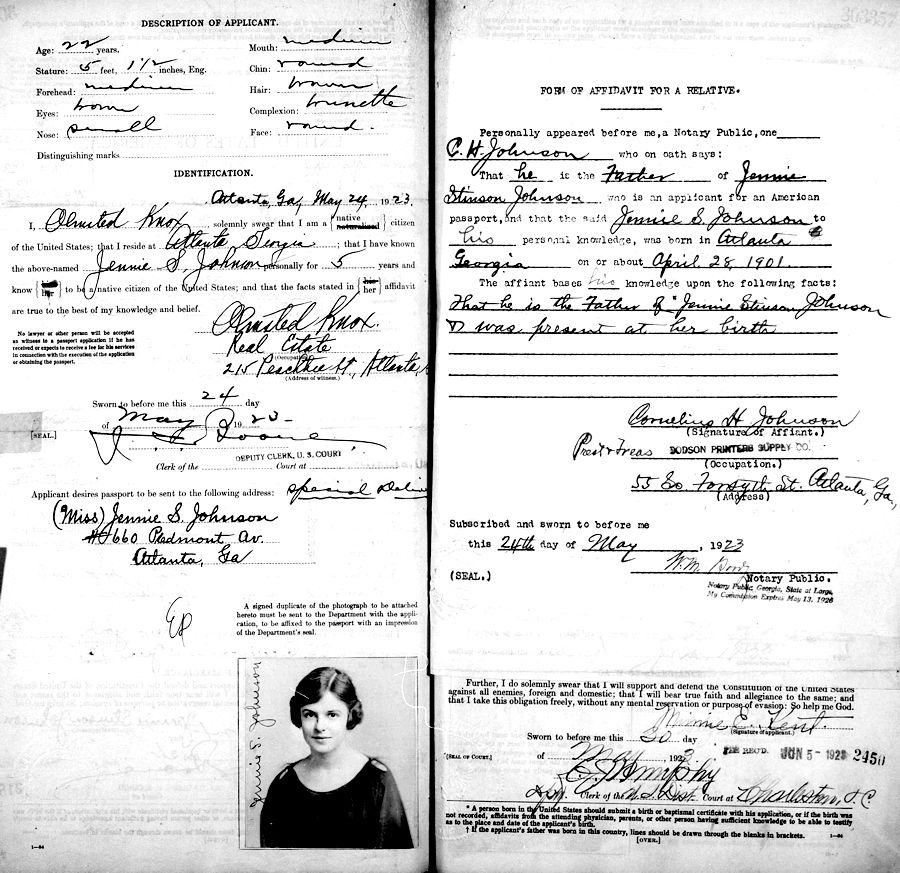 DESCRIPTION OF APPLICANT.
Age: 22 years.
Stature: 5 feet, 1 1/2 inches, Eng.
Forehead: medium
Eyes: brown
Nose: small
Distinguishing marks
Mouth: medium
Chin: round
Hair: brown
Complexion: brunette
Face: round.
IDENTIFICATION.
Atlanta, Ga, May 24, 1923
I, Olmsted Knox, solemnly swear that I am a {native naturalized} citizen
of the United States; that I reside at Atlanta Georgia; that I have known
the above-named Jennie S. Johnson personally for 5 years and
know {him her} to be a native citizen of the United States; and that the facts stated in {his her} affidavit
are true to the best of my knowledge and belief.
Olmsted Knox.
No lawyer or other person will be accepted
as witness to a passport application if he has
received or expects to receive a fee for his services
in connection with the execution of the application
or obtaining the passport.
Real Estate
(Occupation.)
215 Peachtree St., Atlanta,
(Address of witness.)
Sworn to before me this 24 day
of May 1923-
[SEAL.]
Boone
DEPUTY CLERK, U. S. COURT
Clerk of the Court at
Applicant desires passport to be sent to the following address: special
(Miss) Jennie S. Johnson
#660 Piedmont Av.
Atlanta, Ga
A signed duplicate of the photograph to be attached
hereto must be sent to the Department with the appli-
cation, to be affixed to the passport with an impression
of the Department's seal.
Jennie S. Johnson
1—84
303357
FORM OF AFFIDAVIT FOR A RELATIVE.
Personally appeared before me, a Notary Public, one
C. H. Johnson who on oath says:
That he is the Father of Jennie
Stinson Johnson who is an applicant for an American
passport, and that the said Jennie S. Johnson to
his personal knowledge, was born in Atlanta
Georgia on or about April 28, 1901.
The affiant bases his knowledge upon the following facts:
That he is the Father of Jennie Stinson Johnson
& was present at her birth
Cornelius H Johnson
(Signature of Affiant.)
Prest & Treas DODSON PRINTERS SUPPLY CO.
(Occupation.)
55 So Forsyth St. Atlanta, Ga,
(Address)
Subscribed and sworn to before me
this 24th day of May, 1923
W.M.
(SEAL.) Notary Public.
Notary Public, Georgia, State at Large,
My Commission Expires May 13, 1926
Further, I do solemnly swear that I will support and defend the Constitution of the United States
against all enemies, foreign and domestic; that I will bear true faith and allegiance to the same; and
that I take this obligation freely, without any mental reservation or purpose of evasion: So help me God.
Minnie E. Kent.
(Signature of applicant.)
Sworn to before me this 30 day
[SEAL OF COURT.] of May 1923
FEE REC'D. JUN 5 - 1923 2450
Clerk of the Court at Charleston, S.C.
* A person born in the United States should submit a birth or baptismal certificate with his application, or if the birth was
not recorded, affidavits from the attending physician, parents, or other person having sufficient knowledge to be able to testify
as to the place and date of the applicant's birth.
† If the applicant's father was born in this country, lines should be drawn through the blanks in brackets.
[OVER.]
1—84